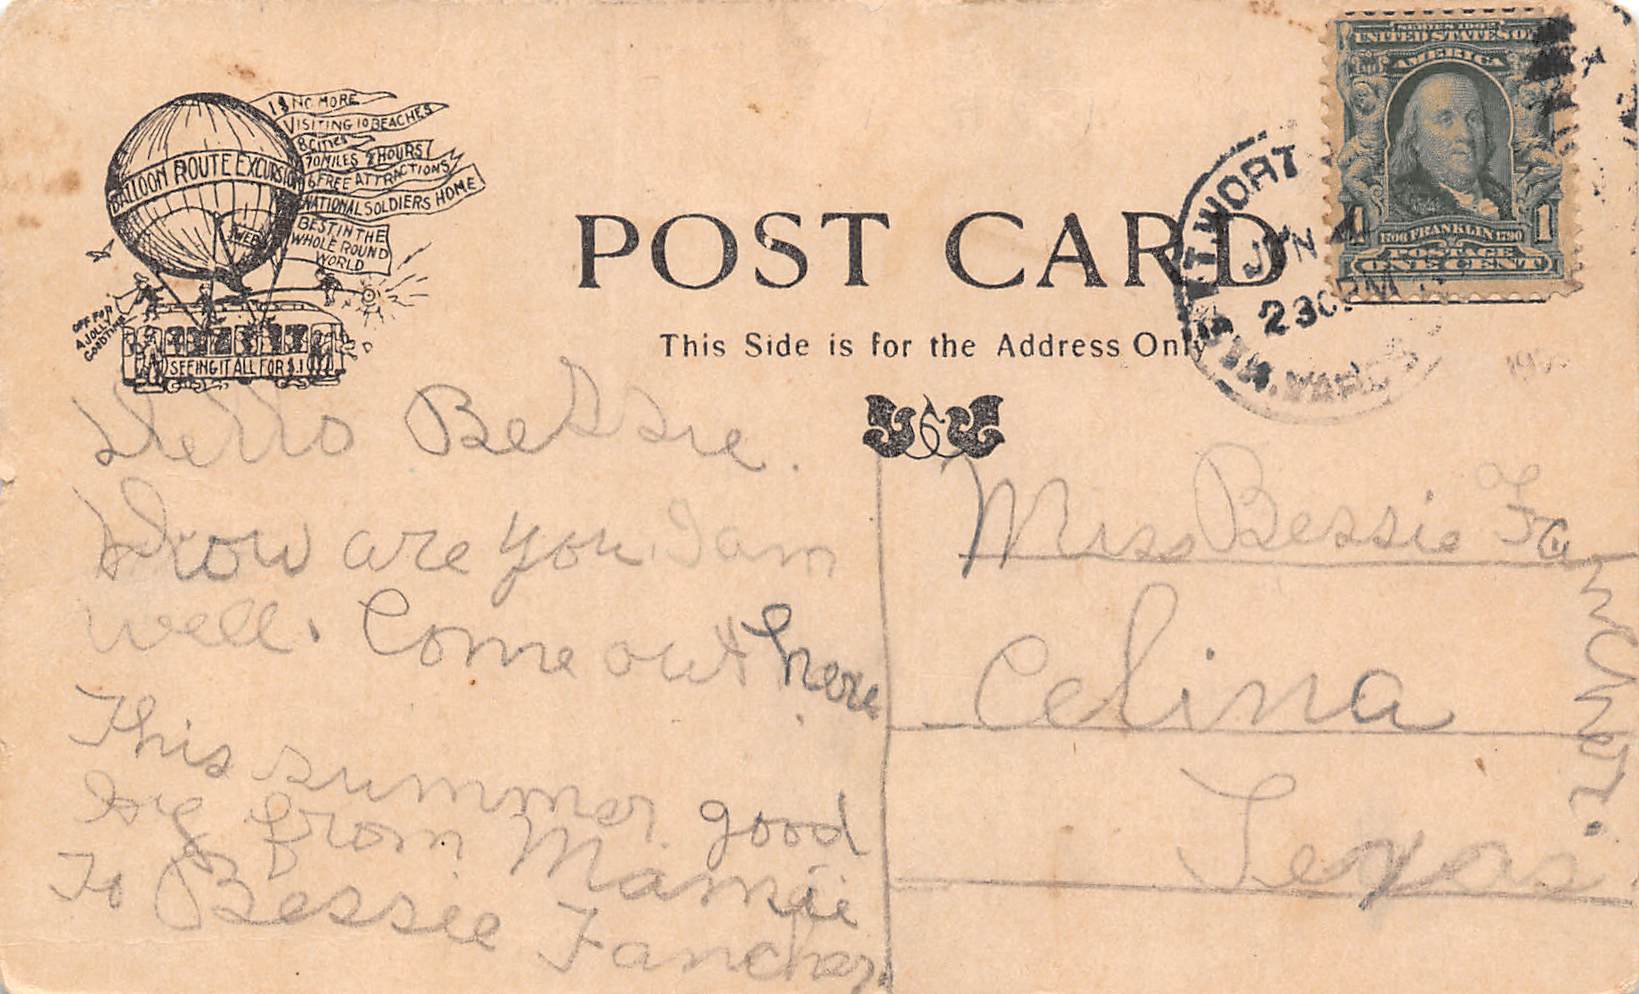 1$ NO MORE
VISITING 10 BEACHES
8 CITIES
70 MILES HOURS
6 FREE ATTRACTIONS
NATIONAL SOLDIERS HOME
BEST IN THE
WHOLE ROUND
WORLD
BALLOON ROUTE EXCURSION
OFF FOR
A JOLLY
GOOD TIME
SEEING IT ALL FOR $.1
SERIES 1902
UNITED STATES OF
AMERICA
1706 FRANKLIN 1790
POSTAGE
1 ONE CENT 1
POST CARD
This Side is for the Address Only
FT. WORT
JUN 4
230 PM
6
Hello Bessie.
How are you I am
well. Come out here
This summer good
by from Mamie
To Bessie Fancher.
Miss Bessie Fancher.
Celina
Texas